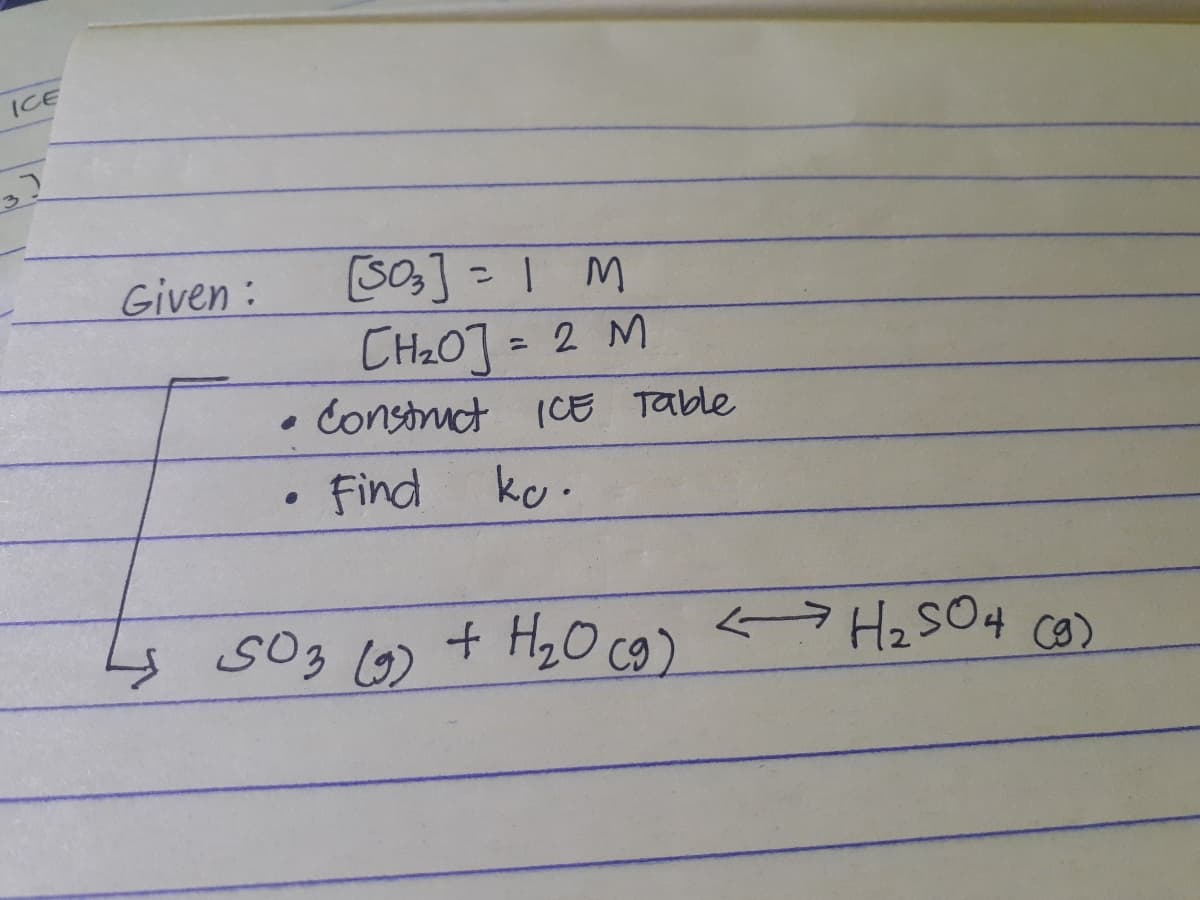 ICE
3)
Given : [SO₃] = 1 M
[H₂O] = 2 M
• Construct ICE Table
• Find kc.
↳ SO₃ (g) + H₂O (g) ⟷ H₂SO₄ (g)